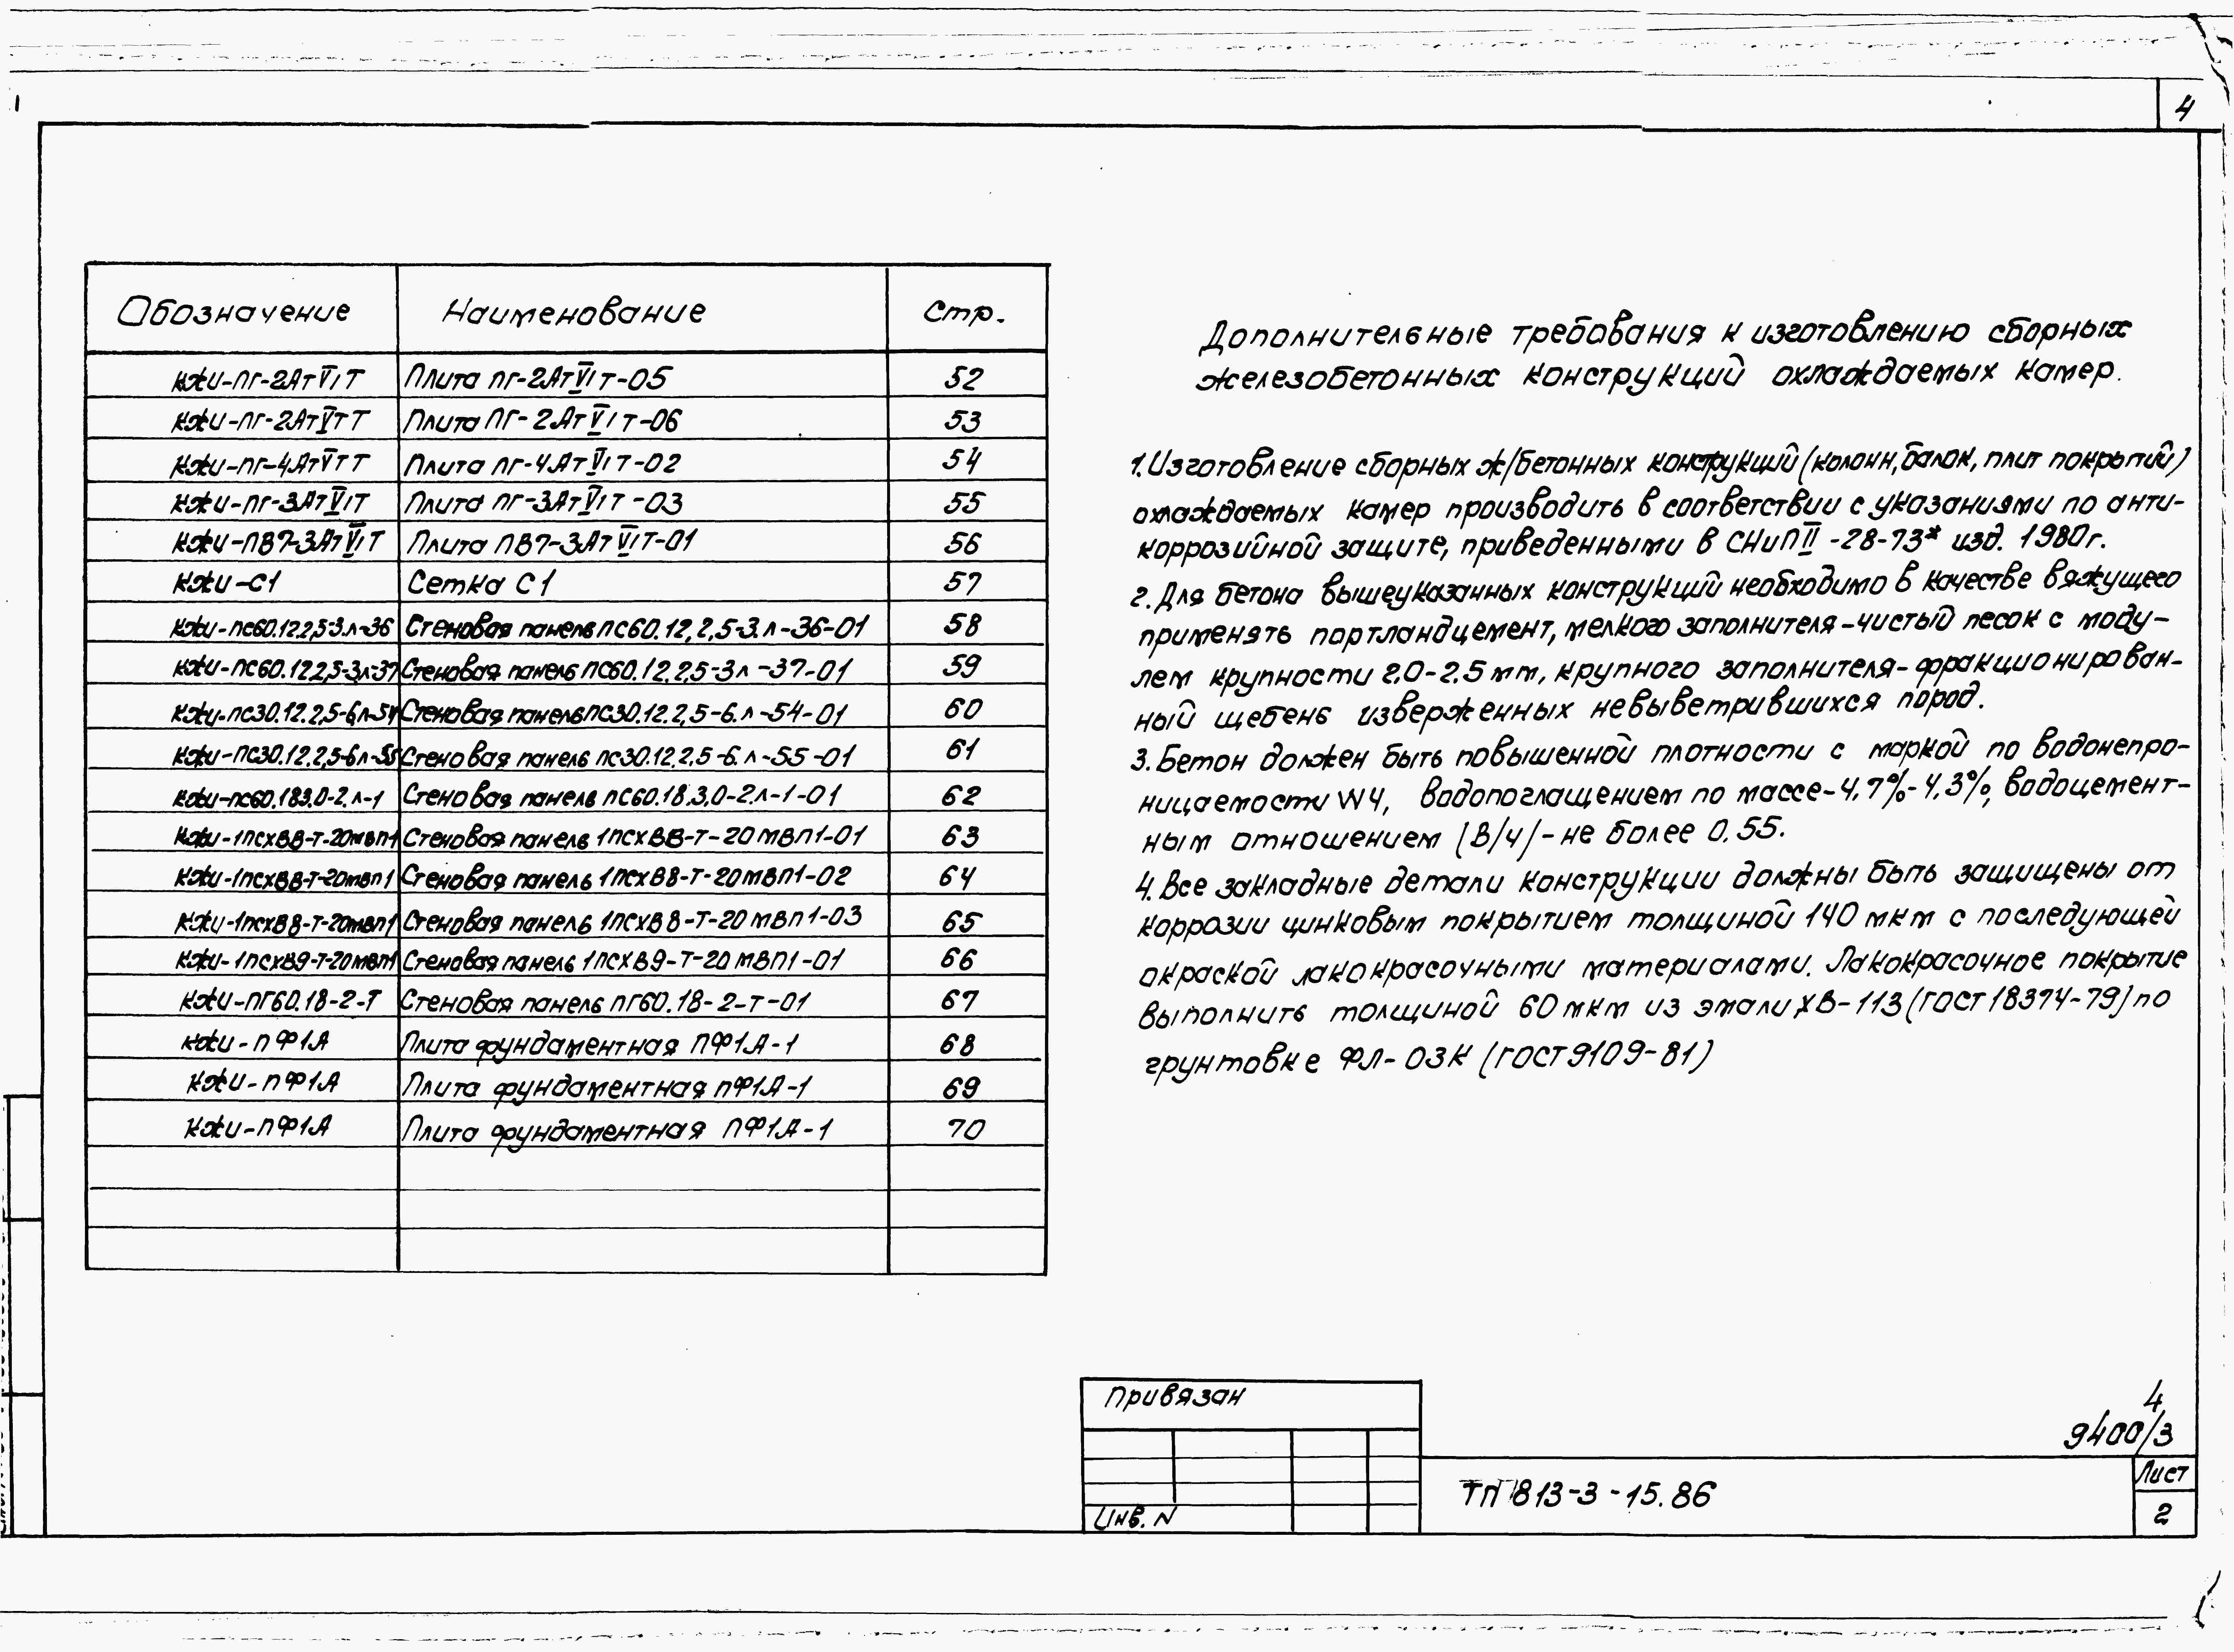 4
Обозначение Наименование Стр.
КЖИ-ПГ-2АтVIТ Плита ПГ-2АтVIТ-05 52
КЖИ-ПГ-2АтVIТ Плита ПГ-2АтVIТ-06 53
КЖИ-ПГ-4АтVIТ Плита ПГ-4АтVIТ-02 54
КЖИ-ПГ-3АтVIТ Плита ПГ-3АтVIТ-03 55
КЖИ-ПВ7-3АтVIТ Плита ПВ7-3АтVIТ-01 56
КЖИ-С1 Сетка С1 57
КЖИ-ПС60.12.2,5-3.л-36 Стеновая панель ПС60.12.2,5-3.л-36-01 58
КЖИ-ПС60.12.2,5-3л-37 Стеновая панель ПС60.12.2,5-3л-37-01 59
КЖИ-ПС30.12.2,5-6.л-54 Стеновая панель ПС30.12.2,5-6.л-54-01 60
КЖИ-ПС30.12.2,5-6л-55 Стеновая панель ПС30.12.2.5-6.л-55-01 61
КЖИ-ПС60.18.3,0-2.л-1 Стеновая панель ПС60.18.3,0-2.л-1-01 62
КЖИ-1ПСХВ8-Т-20МВП1 Стеновая панель 1ПСХВ8-Т-20МВП1-01 63
КЖИ-1ПСХВ8-Т-20МВП1 Стеновая панель 1ПСХВ8-Т-20МВП1-02 64
КЖИ-1ПСХВ8-Т-20МВП1 Стеновая панель 1ПСХВ8-Т-20МВП1-03 65
КЖИ-1ПСХВ9-Т-20МВП1 Стеновая панель 1ПСХВ9-Т-20МВП1-01 66
КЖИ-ПГ60.18-2-Т Стеновая панель ПГ60.18-2-Т-01 67
КЖИ-ПФ1А Плита фундаментная ПФ1А-1 68
КЖИ-ПФ1А Плита фундаментная ПФ1А-1 69
КЖИ-ПФ1А Плита фундаментная ПФ1А-1 70
Дополнительные требования к изготовлению сборных
железобетонных конструкций охлаждаемых камер.
1. Изготовление сборных ж/бетонных конструкций (колонн, балок, плит покрытий)
охлаждаемых камер производить в соответствии с указаниями по анти-
коррозийной защите, приведенными в СНиП II-28-73* изд. 1980г.
2. Для бетона вышеуказанных конструкций необходимо в качестве вяжущего
применять портландцемент, мелкого заполнителя-чистый песок с моду-
лем крупности 2.0-2.5 мм, крупного заполнителя-фракционирован-
ный щебень изверженных невыветрившихся пород.
3. Бетон должен быть повышенной плотности с маркой по водонепро-
ницаемости W4, водопоглащением по массе-4,7%-4,3%, водоцемент-
ным отношением (В/ч)-не более 0.55.
4. Все закладные детали конструкции должны быть защищены от
коррозии цинковым покрытием толщиной 140 мкм с последующей
окраской лакокрасочными материалами. Лакокрасочное покрытие
выполнить толщиной 60 мкм из эмали ХВ-113 (ГОСТ 18374-79) по
грунтовке ФЛ-03К (ГОСТ 9109-81)
Привязан
Инв. N
4
9400/3
ТП 813-3-15.86
Лист
2